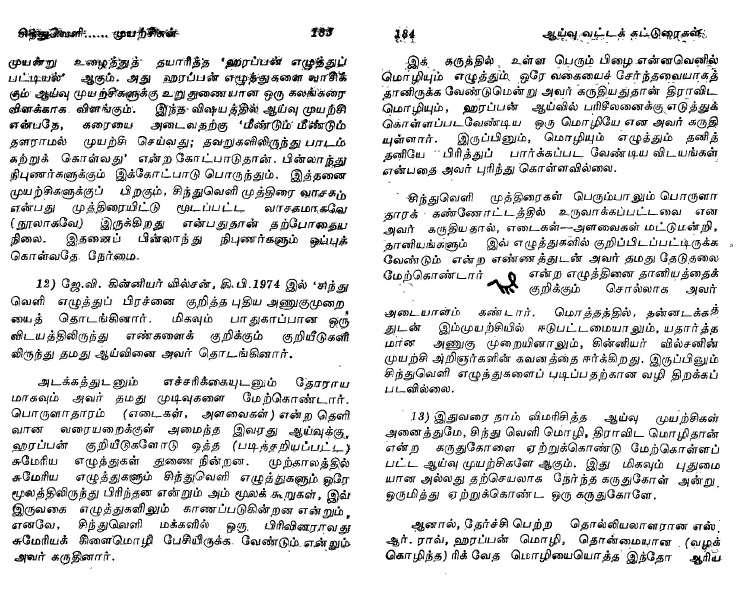 சிந்துவெளி...... முயற்சிகள் 183
முயன்று உழைத்துத் தயாரித்த 'ஹரப்பன் எழுத்துப்
பட்டியல்' ஆகும். அது ஹரப்பன் எழுத்துகளை வாசிக்
கும் ஆய்வு முயற்சிகளுக்கு உறுதுணையான ஒரு கலங்கரை
விளக்காக விளங்கும். இந்த விஷயத்தில் ஆய்வு முயற்சி
என்பதே, கரையை அடைவதற்கு 'மீண்டும் மீண்டும்
தளராமல் முயற்சி செய்வது; தவறுகளிலிருந்து பாடம்
கற்றுக் கொள்வது' என்ற கோட்பாடுதான். பின்லாந்து
நிபுணர்களுக்கும் இக்கோட்பாடு பொருந்தும். இத்தனை
முயற்சிகளுக்குப் பிறகும், சிந்துவெளி முத்திரை வாசகம்
என்பது முத்திரையிட்டு மூடப்பட்ட வாசகமாகவே
(நூலாகவே) இருக்கிறது என்பதுதான் தற்போதைய
நிலை. இதனைப் பின்லாந்து நிபுணர்களும் ஒப்புக்
கொள்வதே நேர்மை.
12) ஜே.வி. கின்னியர் வில்சன், கி.பி.1974 இல் 'சிந்து
வெளி எழுத்துப் பிரச்னை குறித்த புதிய அணுகுமுறை
யைத் தொடங்கினார். மிகவும் பாதுகாப்பான ஒரு
விடயத்திலிருந்து எண்களைக் குறிக்கும் குறியீடுகளி
லிருந்து தமது ஆய்வினை அவர் தொடங்கினார்.
அடக்கத்துடனும் எச்சரிக்கையுடனும் தோராய
மாகவும் அவர் தமது முடிவுகளை மேற்கொண்டார்.
பொருளாதாரம் (எடைகள், அளவைகள்) என்ற தெளி
வான வரையறைக்குள் அமைந்த இவரது ஆய்வுக்கு,
ஹரப்பன் குறியீடுகளோடு ஒத்த (படித்தறியப்பட்ட)
சுமேரிய எழுத்துகள் துணை நின்றன. முற்காலத்தில்
சுமேரிய எழுத்துகளும் சிந்துவெளி எழுத்துகளும் ஒரே
மூலத்திலிருந்து பிரிந்தன என்றும் அம் மூலக் கூறுகள், இவ்
இருவகை எழுத்துகளிலும் காணப்படுகின்றன என்றும்,
எனவே, சிந்துவெளி மக்களில் ஒரு பிரிவினராவது
சுமேரியக் கிளைமொழி பேசியிருக்க வேண்டும் என்றும்
அவர் கருதினார்.
184 ஆய்வு வட்டக் கட்டுரைகள்
இக் கருத்தில் உள்ள பெரும் பிழை என்னவெனில்
மொழியும் எழுத்தும் ஒரே வகையைச் சேர்ந்தவையாகத்
தானிருக்க வேண்டுமென்று அவர் கருதியதுதான் திராவிட
மொழியும், ஹரப்பன் ஆய்வில் பரிசீலனைக்கு எடுத்துக்
கொள்ளப்படவேண்டிய ஒரு மொழியே என அவர் கருதி
யுள்ளார். இருப்பினும், மொழியும் எழுத்தும் தனித்
தனியே பிரித்துப் பார்க்கப்பட வேண்டிய விடயங்கள்
என்பதை அவர் புரிந்து கொள்ளவில்லை.
சிந்துவெளி முத்திரைகள் பெரும்பாலும் பொருளா
தாரக் கண்ணோட்டத்தில் உருவாக்கப்பட்டவை என
அவர் கருதியதால், எடைகள்—அளவைகள் மட்டுமன்றி,
தானியங்களும் இவ் எழுத்துகளில் குறிப்பிடப்பட்டிருக்க
வேண்டும் என்ற எண்ணத்துடன் அவர் தமது தேடுதலை
மேற்கொண்டார் என்ற எழுத்தினை தானியத்தைக்
குறிக்கும் சொல்லாக அவர்
அடையாளம் கண்டார். மொத்தத்தில், தன்னடக்கத்
துடன் இம்முயற்சியில் ஈடுபட்டமையாலும், யதார்த்த
மான அணுகு முறையினாலும், கின்னியர் வில்சனின்
முயற்சி அறிஞர்களின் கவனத்தை ஈர்க்கிறது. இருப்பினும்
சிந்துவெளி எழுத்துகளைப் புடிப்பதற்கான வழி திறக்கப்
படவில்லை.
13) இதுவரை நாம் விமரிசித்த ஆய்வு முயற்சிகள்
அனைத்துமே, சிந்து வெளி மொழி, திராவிட மொழிதான்
என்ற கருதுகோளை ஏற்றுக்கொண்டு மேற்கொள்ளப்
பட்ட ஆய்வு முயற்சிகளே ஆகும். இது மிகவும் புதுமை
யான அல்லது தற்செயலாக நேர்ந்த கருதுகோள் அன்று.
ஒருமித்து ஏற்றுக்கொண்ட ஒரு கருதுகோளே.
ஆனால், தேர்ச்சி பெற்ற தொல்லியலாளரான எஸ்.
ஆர். ராவ், ஹரப்பன் மொழி, தொன்மையான (வழக்
கொழிந்த) ரிக் வேத மொழியையொத்த இந்தோ ஆரிய